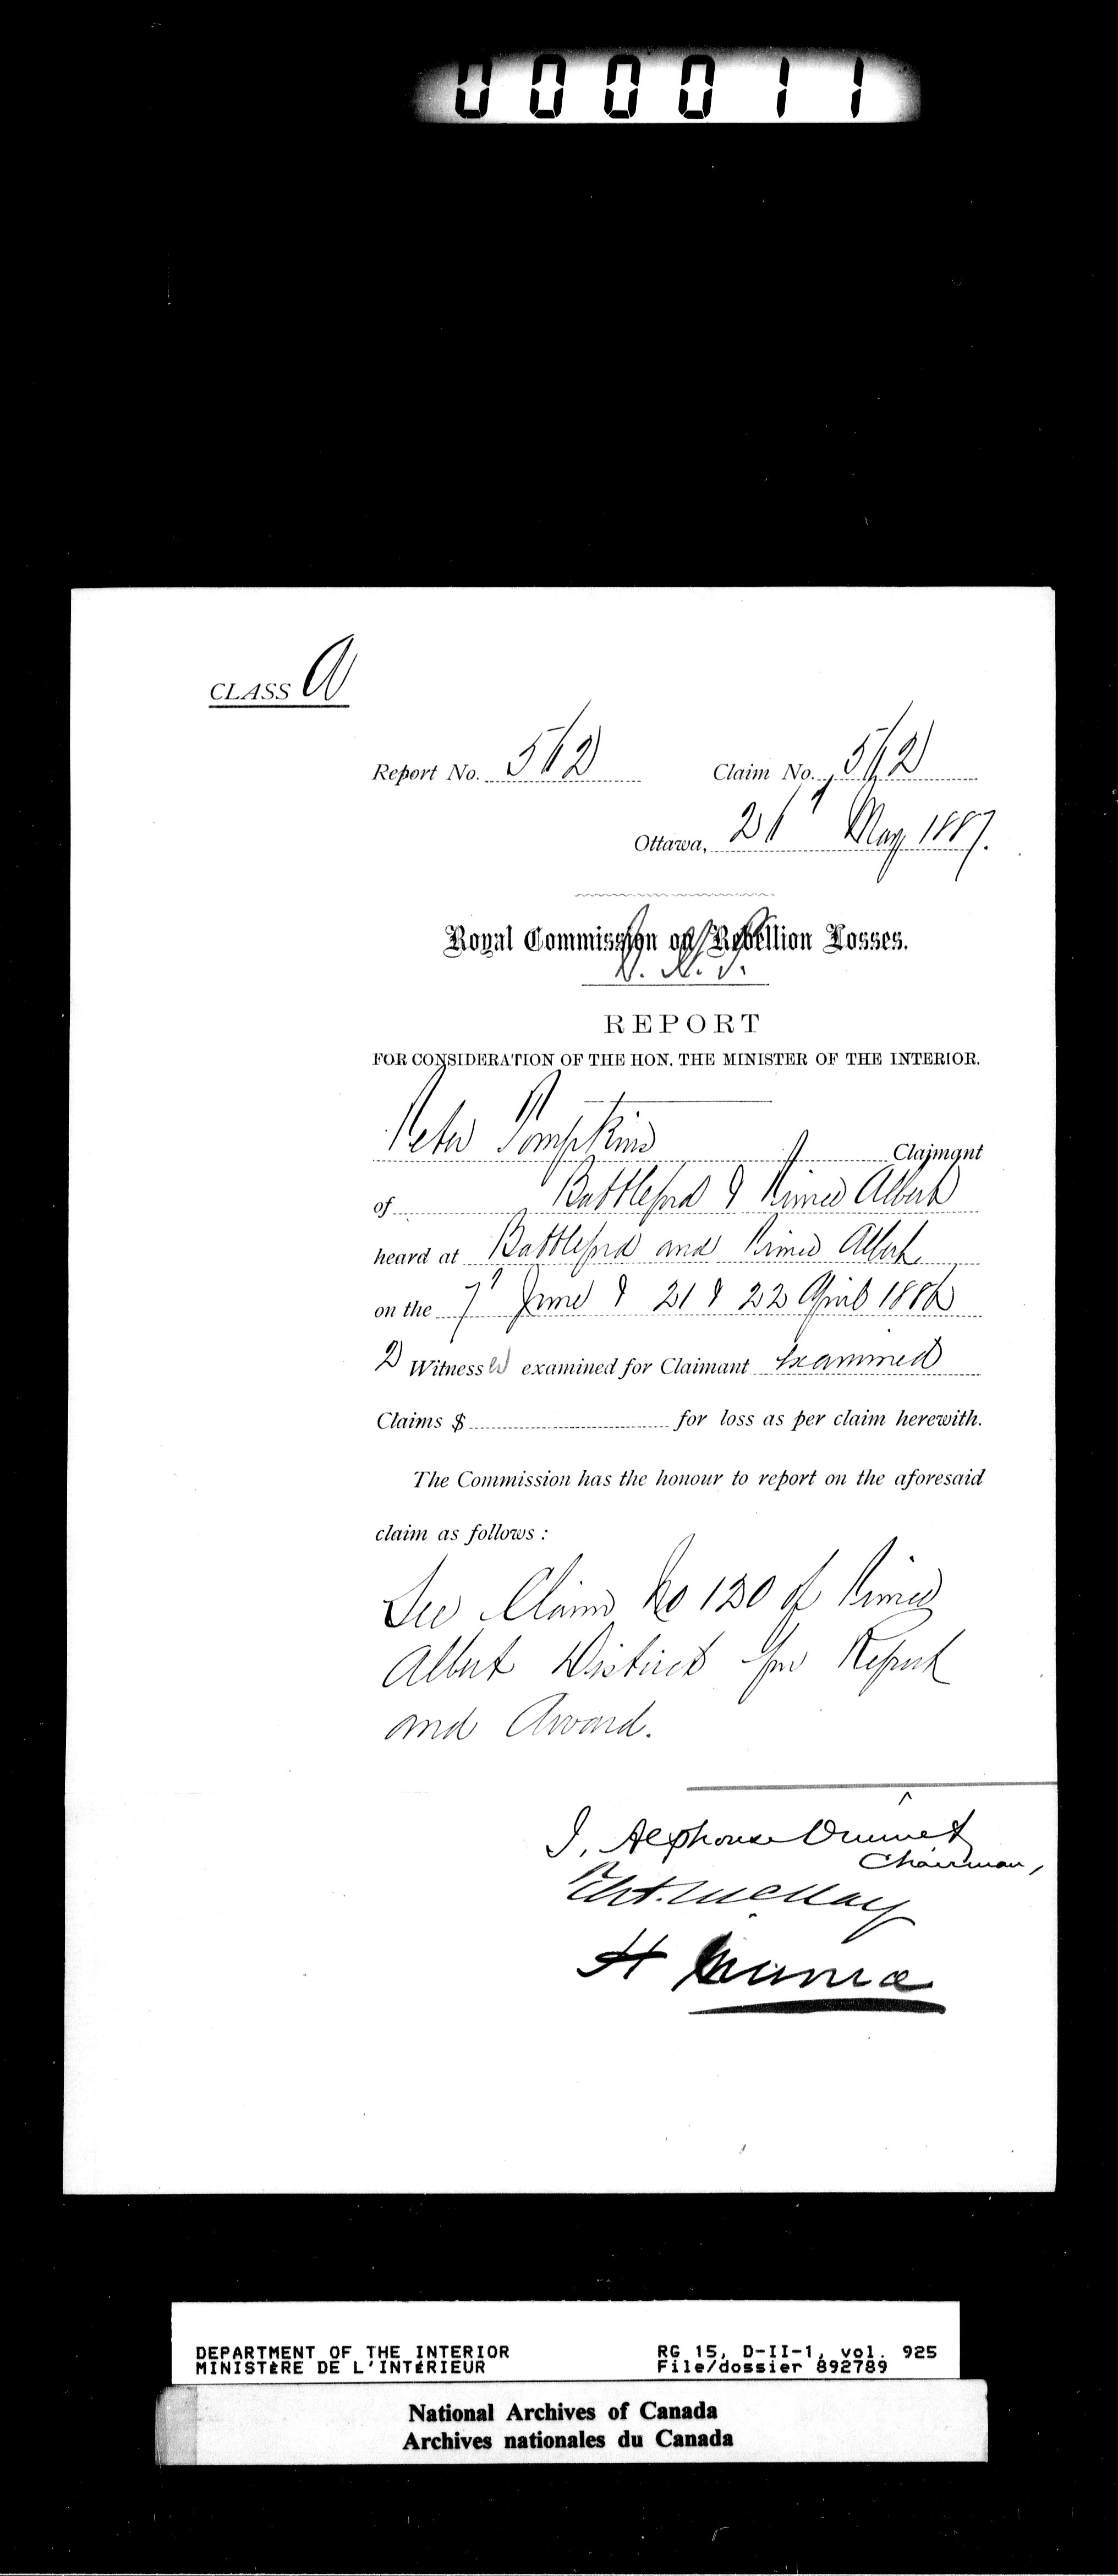 000011
CLASS A
Report No. 562 Claim No. 562
Ottawa, 26 May 1887.
Royal Commission on Rebellion Losses.
REPORT
FOR CONSIDERATION OF THE HON. THE MINISTER OF THE INTERIOR.
Peter Tompkins Claimant
of Battleford & Prince Albert
heard at Battleford and Prince Albert
on the 7 June & 21 & 22 April 1886
2 Witness es examined for Claimant examined
Claims $ for loss as per claim herewith.
The Commission has the honour to report on the aforesaid
claim as follows :
See Claim No 120 of Prince
Albert District for Report
and Award.
J. Alphonse Ouimet
Chairman,
McKay
H Muma
DEPARTMENT OF THE INTERIOR RG 15, D-II-1, vol. 925
MINISTÈRE DE L'INTÉRIEUR File/dossier 892789
National Archives of Canada
Archives nationales du Canada